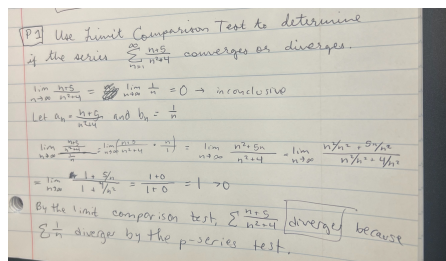 P1 Use Limit Comparison Test to determine
if the series ∞Σn=1 n+5/n²+4 converges or diverges.
lim n→∞ n+5/n²+4 = lim n→∞ 1/n = 0 → inconclusive
Let aₙ = n+5/n²+4 and bₙ = 1/n
lim n→∞ (n+5/n²+4)/(1/n) = lim n→∞ (n+5/n²+4 · n/1) = lim n→∞ n²+5n/n²+4 = lim n→∞ n²/n² + 5n/n² / n²/n² + 4/n²
= lim n→∞ 1 + 5/n / 1 + 4/n² = 1+0/1+0 = 1 > 0
By the limit comparison test, Σ n+5/n²+4 diverges because
Σ 1/n diverges by the p-series test.